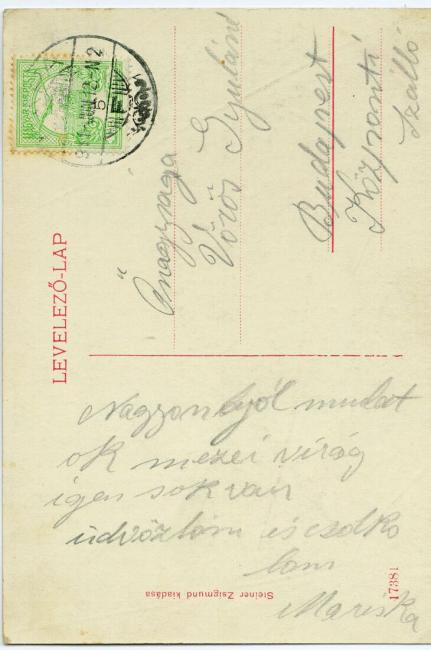 LEVELEZŐ-LAP
Őnagysága
Vörös Gyuláné
Budapest
Központi
Szálló
Nagyon jól mulat
ok mezei virág
igen sok van
üdvözlöm és csolko
lom
Mariska
Steiner Zsigmond kiadása
17381